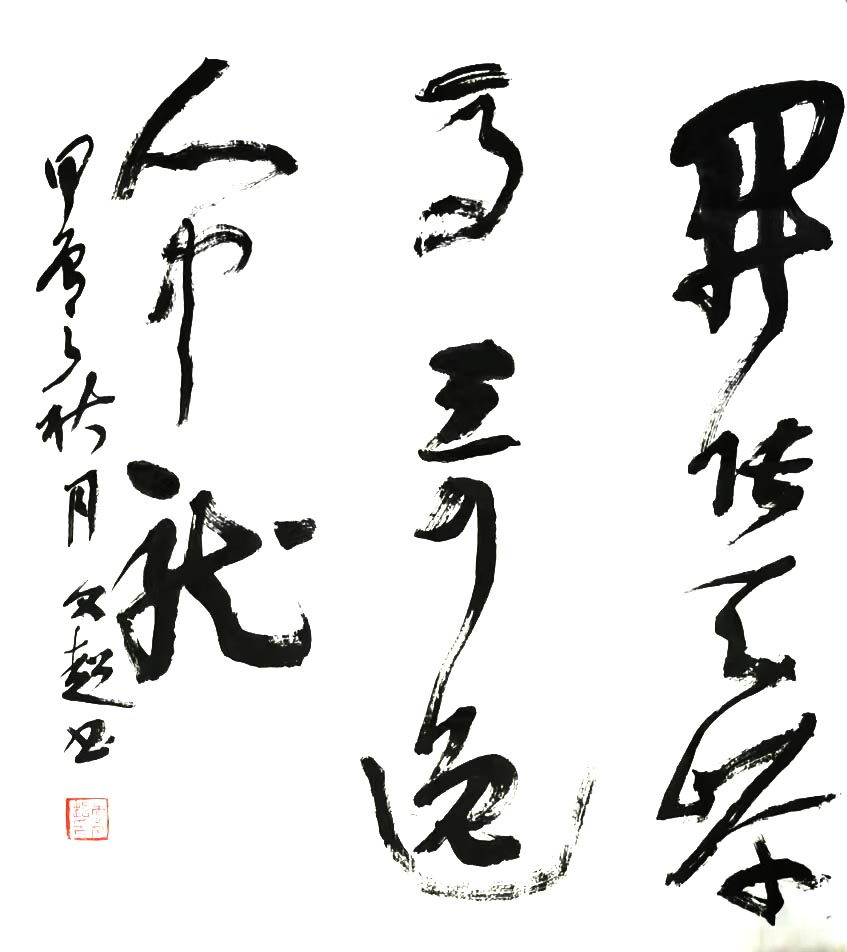 開張天岸
馬奇逸
人中龍
甲之秋月文超书